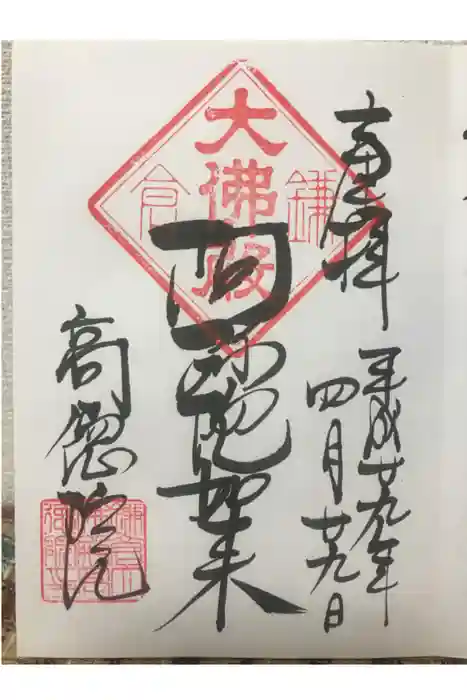 奉拝
平成廿九年
四月廿九日
鎌倉
大佛殿
阿弥陀如来
高徳院